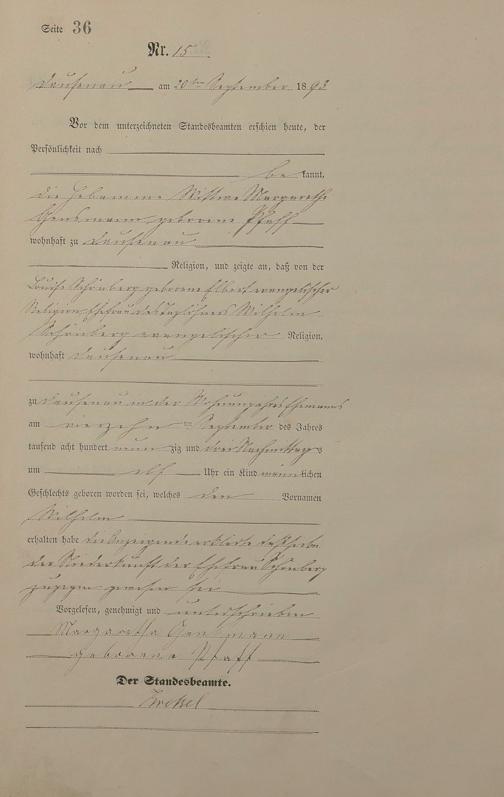 Seite 36
Nr. 15
Dausenau am 20ten September 1893
Vor dem unterzeichneten Standesbeamten erschien heute, der
Persönlichkeit nach
bekannt,
die Hebamme Wittwe Margaretha
geborene Pfaff
wohnhaft zu Dausenau
Religion, und zeigte an, daß von der
Louise Schönberg geborene Elbert evangelischer
Religion, Ehefrau des Taglöhners Wilhelm
Schönberg evangelischer Religion,
wohnhaft Dausenau
zu Dausenau in der Wohnung ihres Ehemanns
am vierzehn ten September des Jahres
tausend acht hundert neunzig und drei Nachmittags
um elf Uhr ein Kind männlichen
Geschlechts geboren worden sei, welches den Vornamen
Wilhelm
erhalten habe die Anzeigende erklärte daß sie bei
der Niederkunft der Ehefrau Schönberg
zugegen gewesen sei
Vorgelesen, genehmigt und unterschrieben
Margaretha
geborene Pfaff
Der Standesbeamte.